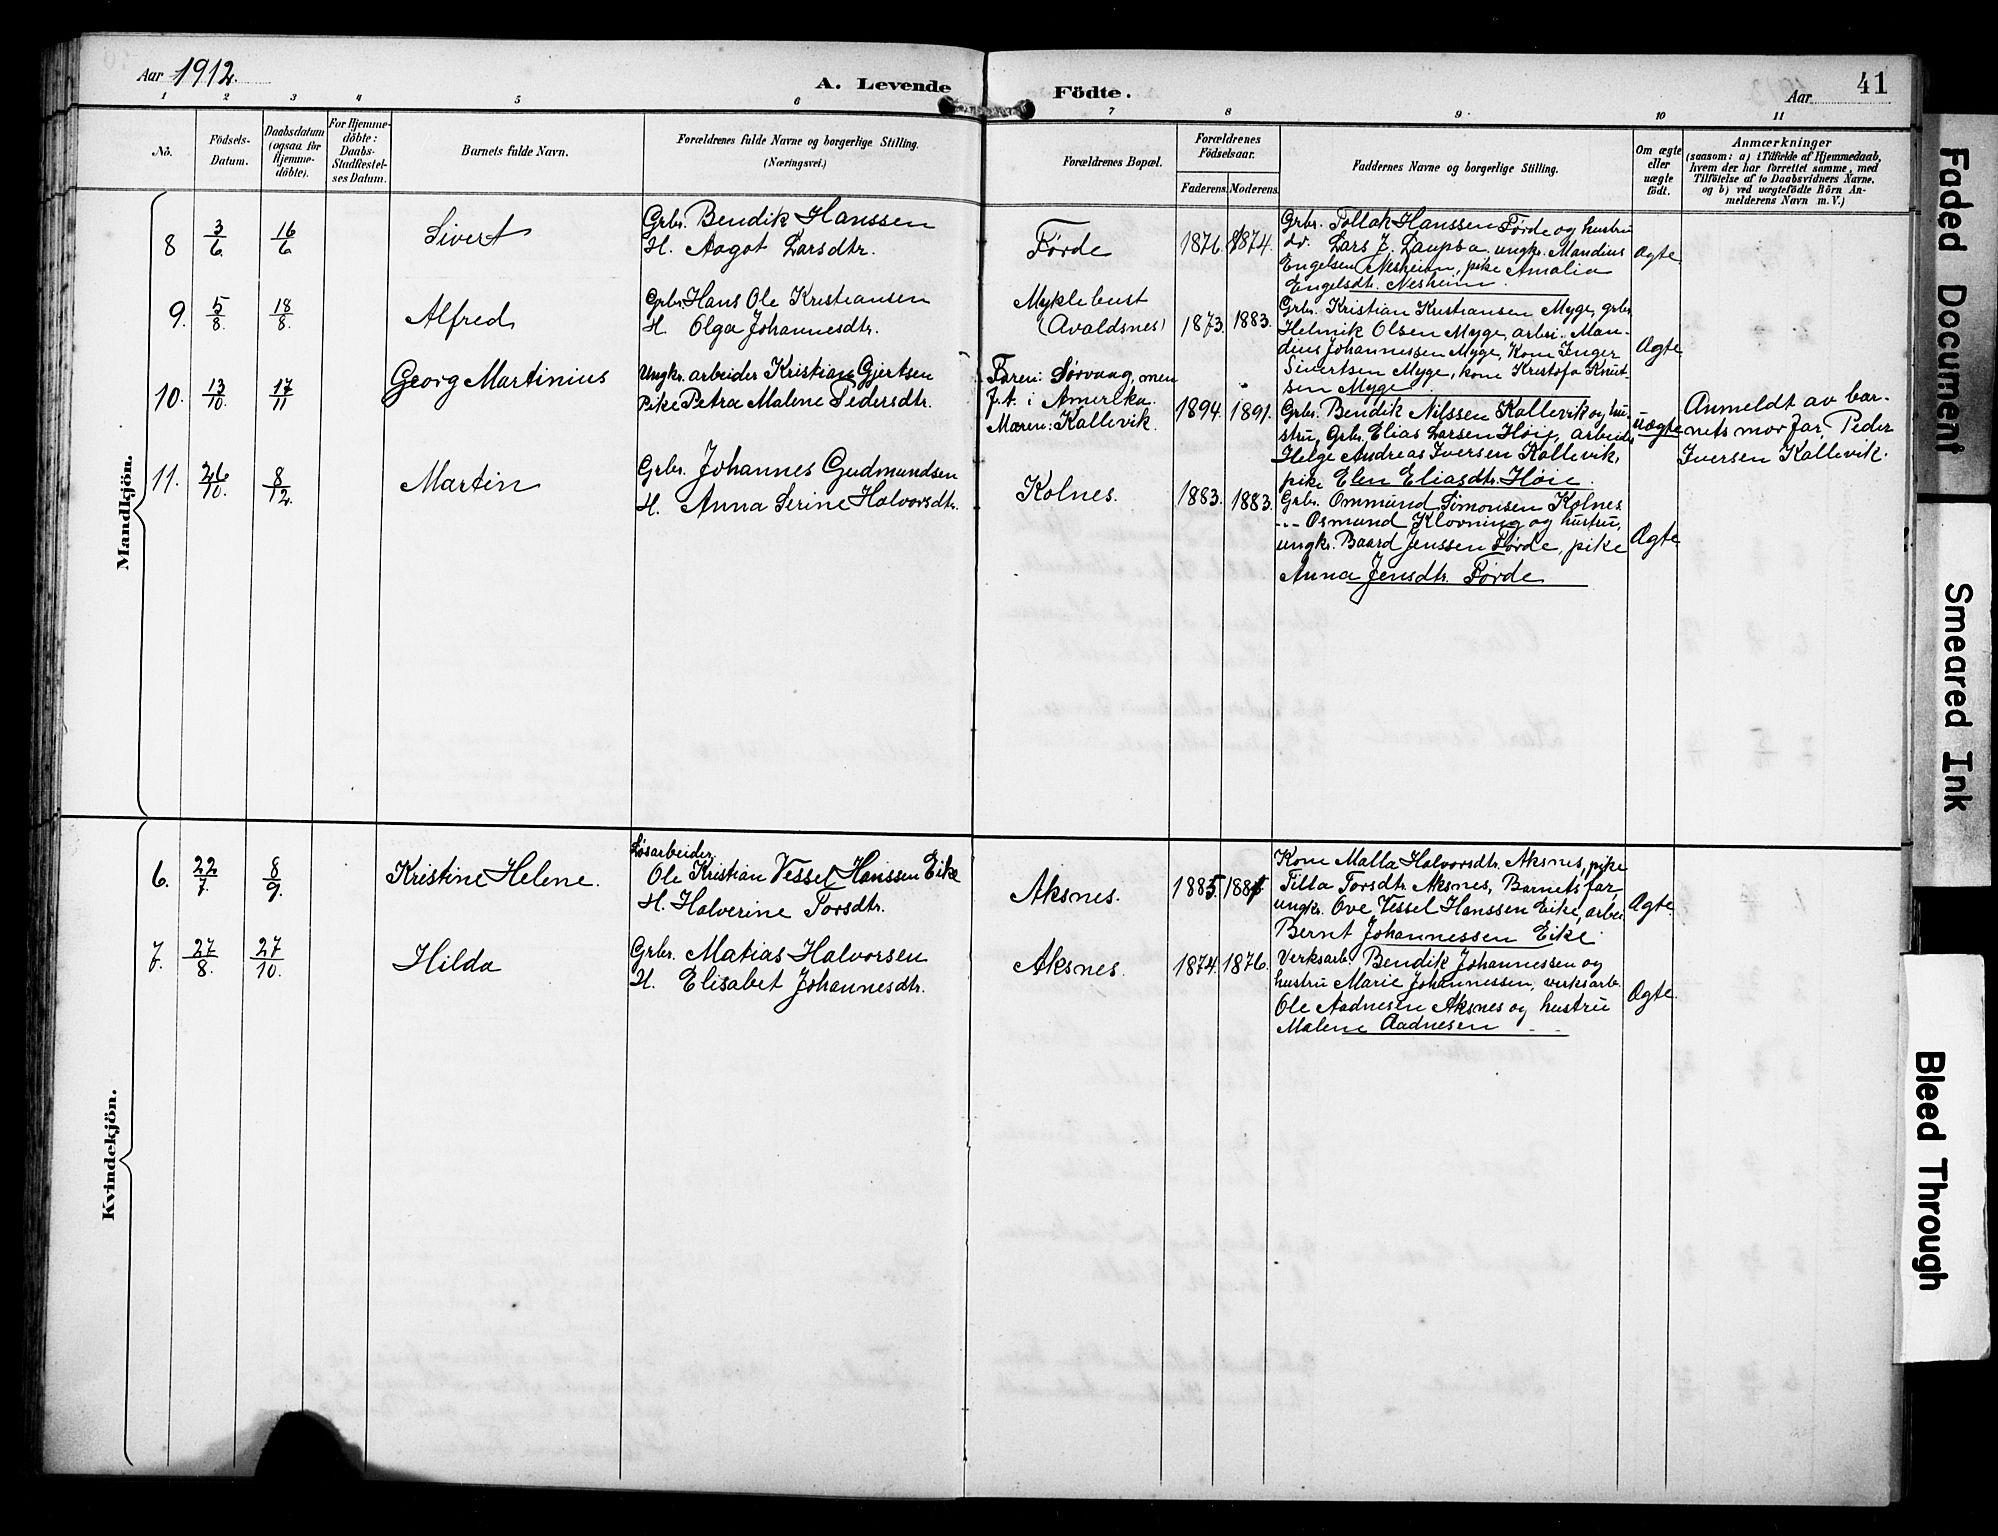 Aar 1912.
A. Levende Födte.
Aar
41
1 2 3 4 5 6 7 8 9 10 11
No.
Födsels-
Datum.
Daabsdatum
(ogsaa for
Hjemme-
döbte).
For Hjemme-
döbte:
Daabs-
Stadfæstel-
ses Datum.
Barnets fulde Navn.
Forældrenes fulde Navne og borgerlige Stilling.
(Næringsvei.)
Forældrenes Bopæl.
Forældrenes
Födselsaar.
Faderens. Moderens.
Faddernes Navne og borgerlige Stilling.
Om ægte
eller
uægte
födt.
Anmærkninger
(saasom: a) i Tilfælde af Hjemmedaab,
hvem der har forrettet samme, med
Tilföielse af to Daabsvidners Navne.
og b) ved uægtefödte Börn An-
melderens Navn m. V.)
Mandkjön.
8 3/6 16/6 Sivert
Grbr. Bendik Hanssen
H. Aagot Larsdtr.
Førde 1876. 1874.
Grbr. Tollak Hanssen Førde og hustru
do. Lars J. Laupba, ungkr. Mandius
Engelsen Nesheim, pike Amalia
Engelsdtr. Nesheim.
Ægte
9. 5/8. 18/8. Alfred
Grbr. Hans Ole Kristiansen
H. Olga Johannesdtr.
Myklebust
(Avaldsnes)
1873. 1883.
Grbr. Kristian Kristiansen Myge, grbr.
Helmik Olsen Myge, arbei.. Man-
dius Johannessen Myge, Kone Inger
Sivertsen Myge, kone Kristofa Knut-
sen Myge
Ægte
10. 13/10. 17/11 Georg Martinius
Ungkr. arbeider Kristian Gjertsen
Pike Petra Malene Pedersdtr.
Faren: Sørvaag, men
f.t. i Amerika.
Moren: Kallevik.
1894. 1891.
Grbr. Bendik Nilssen Kallevik og hu-
stru, Grbr. Elias Larsen Høie, arbeid.
Helge Andreas Iversen Kallevik,
pike Elen Eliasdtr. Høie.
uægte
Anmeldt av bar-
nets morfar, Peder
Iversen Kallevik.
11. 26/10. 8/12. Martin
Grbr. Johannes Gudmundsen
H. Anna Serine Halvorsdtr.
Kolnes. 1883. 1883.
Grbr. Ommund Simonsen Kolnes
--- Osmund Klovning og hustru,
ungkr. Baard Jenssen Førde, pike
Anna Jensdtr. Førde
Ægte
Kvindekjön.
6. 22/7. 8/9. Kristine Helene.
Løsarbeider
Ole Kristian Vessel Hanssen Eike
H. Halverine Torsdtr.
Aksnes. 1885.
Kone Malla Halvorsdtr. Aksnes, pike
Tilla Torsdtr. Aksnes, Barnets far,
ungkr. Ove Vessel Hanssen Eike, arbei
Bernt Johannessen Eike.
Ægte.
7. 27/8. 27/10. Hilda
Grbr. Matias Halvorsen
H. Elisabet Johannesdtr.
Aksnes. 1874. 1876.
Verksarb. Bendik Johannessen og
hustru Marie Johannessen, verksarb.
Ole Aadnesen Aksnes og hustru
Malene Aadnesen
Ægte.
Faded Document
Smeared Ink
Bleed Through